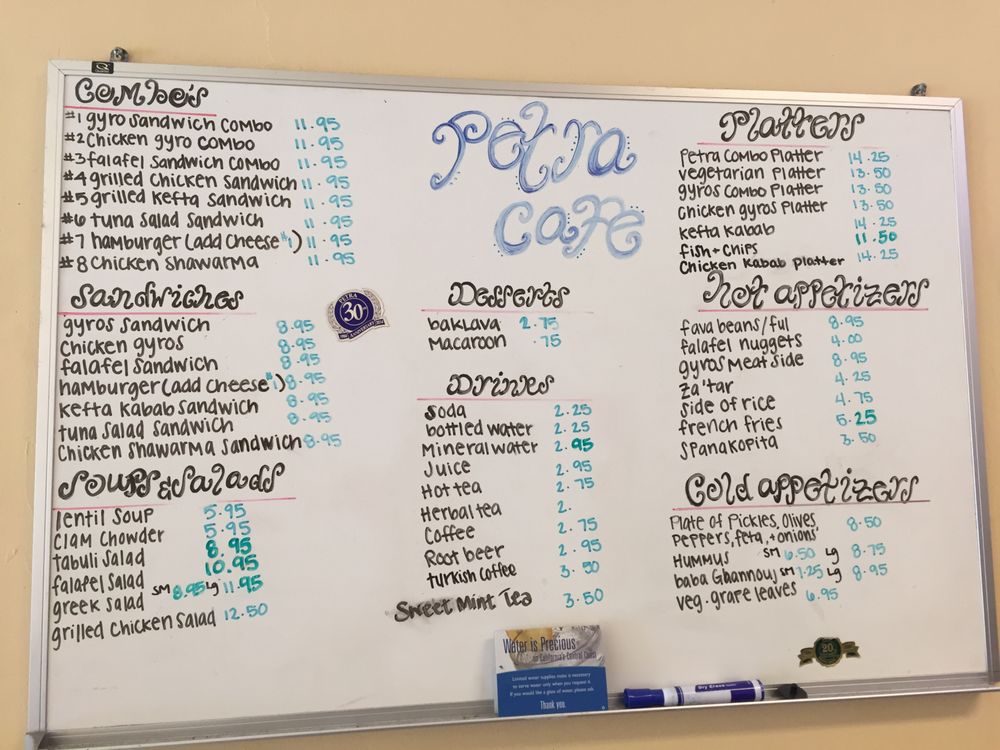 Combo's
#1 gyro sandwich combo 11.95
#2 Chicken gyro combo 11.95
#3 falafel sandwich combo 11.95
#4 grilled Chicken sandwich 11.95
#5 grilled kefta sandwich 11.95
#6 tuna salad sandwich 11.95
#7 hamburger (add cheese $1) 11.95
#8 Chicken shawarma 11.95
Sandwiches
gyros sandwich 8.95
Chicken gyros 8.95
falafel sandwich 8.95
hamburger (add cheese $1) 8.95
kefta kabab sandwich 8.95
tuna salad sandwich 8.95
Chicken shawarma sandwich 8.95
Soups & Salads
lentil soup 5.95
Clam chowder 5.95
tabuli salad 8.95
falafel salad 10.95
greek salad sm 8.95 lg 11.95
grilled chicken salad 12.50
Petra
Cafe
PETRA
30th
ANNIVERSARY
Desserts
baklava 2.75
Macaroon .75
Drinks
Soda 2.25
bottled water 2.25
Mineral water 2.95
Juice 2.95
Hot tea 2.75
Herbal tea 2.
Coffee 2.75
Root beer 2.95
turkish coffee 3.50
Sweet Mint Tea 3.50
Platters
Petra Combo Platter 14.25
vegetarian Platter 13.50
gyros Combo Platter 13.50
Chicken gyros Platter 13.50
kefta kabab 14.25
fish + chips 11.50
Chicken Kabab platter 14.25
hot appetizers
fava beans/ful 8.95
falafel nuggets 4.00
gyros meat side 8.95
za'tar 4.25
side of rice 4.75
french fries 5.25
Spanakopita 3.50
Cold appetizers
Plate of Pickles, Olives
Peppers, feta, + onions 8.50
Hummus sm 6.50 lg 8.75
baba Ghannouj sm 7.25 lg 8.95
veg. grape leaves 6.95
20
Water is Precious
on California's Central Coast
Limited water supplies make it necessary
to serve water only when you request it.
If you would like a glass of water, please ask.
Thank you.
Dry Erase